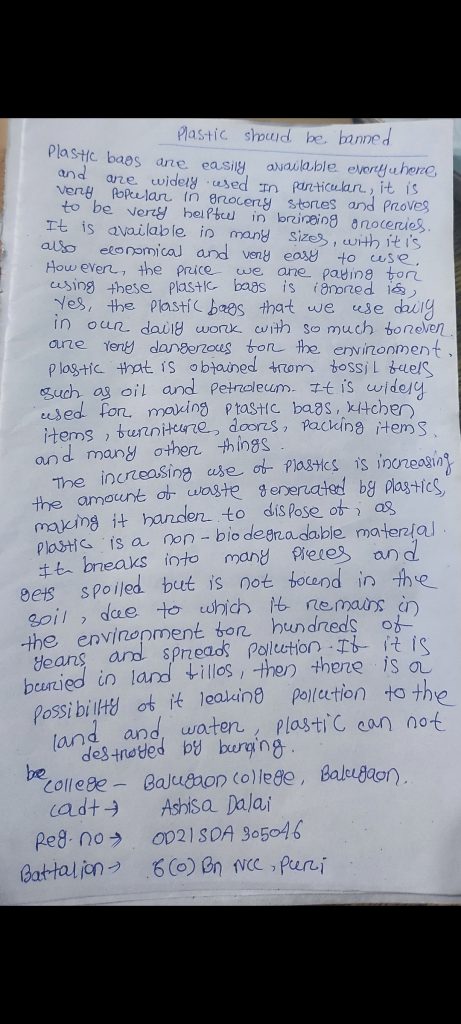 Plastic should be banned
Plastic bags are easily available everywhere
and are widely used In particular, it is
very popular in grocery stores and proves
to be very helpful in bringing groceries.
It is available in many sizes, with it is
also economical and very easy to use.
However, the price we are paying for
using these plastic bags is ignored
Yes, the plastic bags that we use daily
in our daily work with so much
are very dangerous for the environment.
plastic that is obtained from fossil fuels
such as oil and petroleum. It is widely
used for making plastic bags, kitchen
items, furniture, doors, packing items,
and many other things.
The increasing use of plastics is increasing
the amount of waste generated by plastics,
making it harder to dispose of; as
plastic is a non-biodegradable material.
It breaks into many pieces and
gets spoiled but is not bound in the
soil, due to which it remains in
the environment for hundreds of
years and spreads pollution. If it is
buried in land fillos, then there is a
possibility of it leaking pollution to the
land and water, plastic can not
destroyed by burging.
be
College - Balugaon College, Balugaon.
Cadt → Ashisa Dalai
Reg. no → OD21SDA 305046
Battalion → 6(O) Bn NCC, Puri